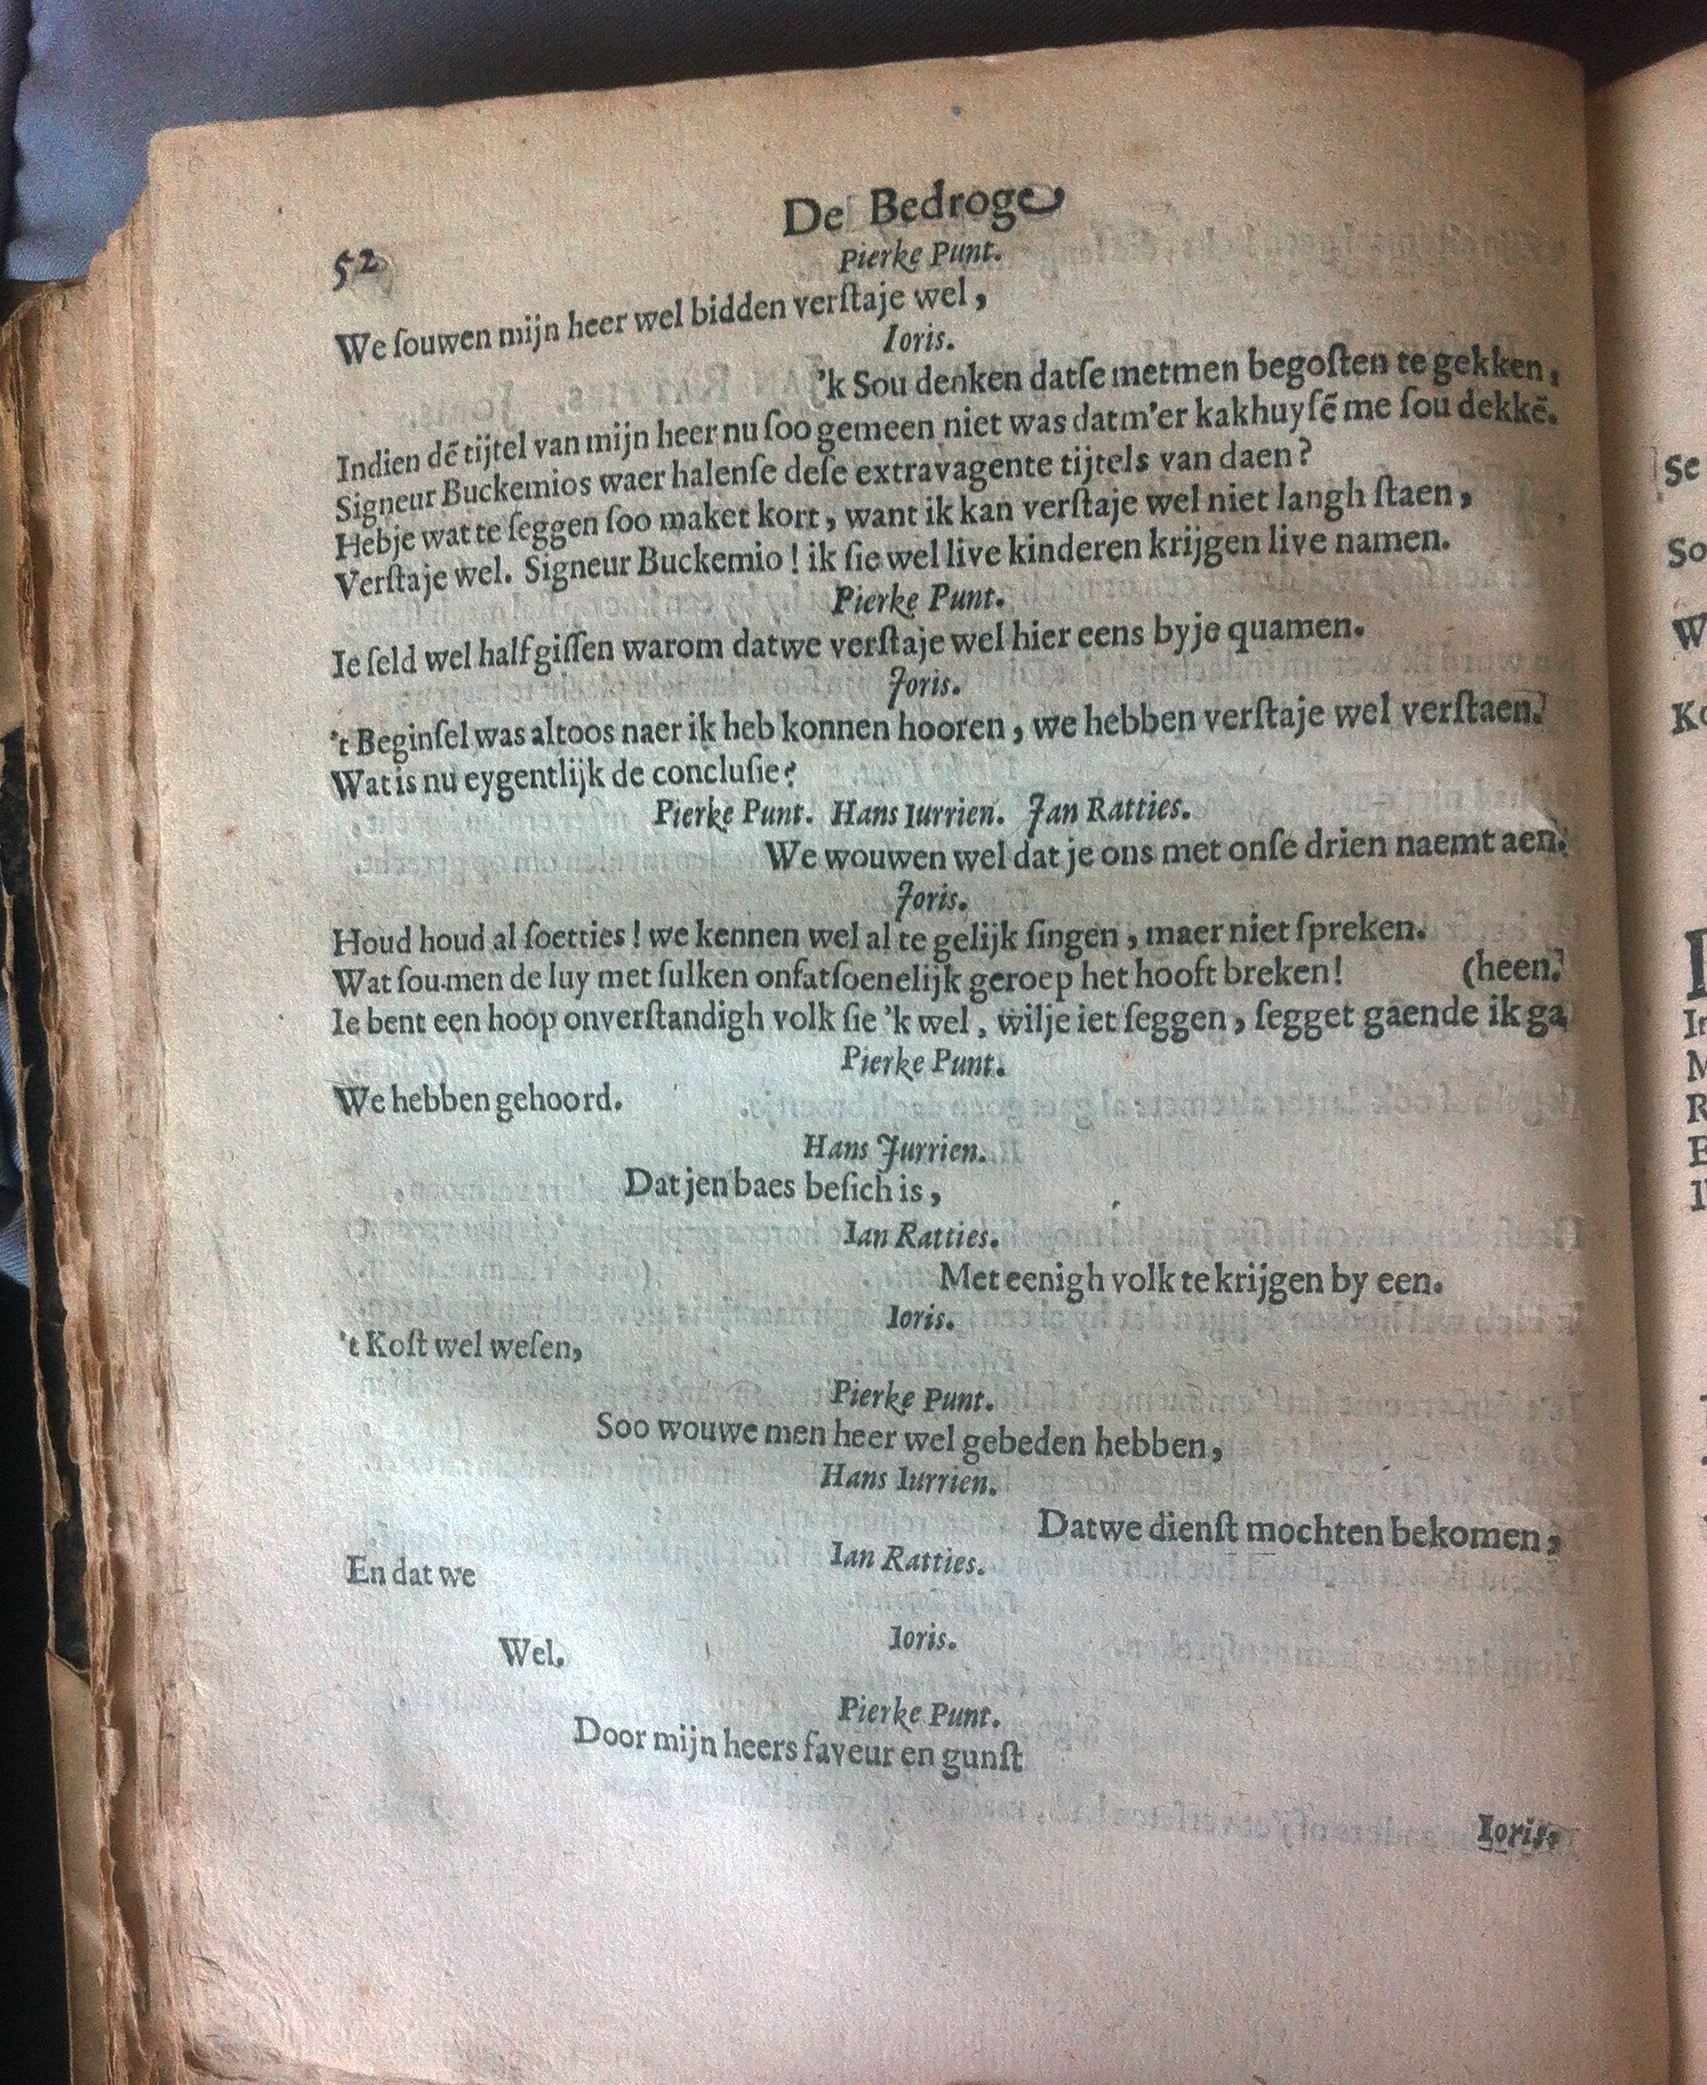 De Bedroge
52
Pierke Punt.
We ſouwen mijn heer wel bidden verſtaje wel,
Ioris.
'k Sou denken datſe metmen begoſten te gekken,
Indien dē tijtel van mijn heer nu ſoo gemeen niet was datm'er kakhuyſē me ſou dekkē.
Signeur Buckemios waer halenſe deſe extravagente tijtels van daen?
Hebje wat te ſeggen ſoo maket kort, want ik kan verſtaje wel niet langh ſtaen,
Verſtaje wel. Signeur Buckemio! ik ſie wel live kinderen krijgen live namen.
Pierke Punt.
Ie ſeld wel half giſſen warom datwe verſtaje wel hier eens byje quamen.
Joris.
't Beginſel was altoos naer ik heb konnen hooren, we hebben verſtaje wel verſtaen.
Wat is nu eygentlijk de concluſie?
Pierke Punt. Hans Iurrien. Jan Ratties.
We wouwen wel dat je ons met onſe drien naemt aen.
Joris.
Houd houd al ſoetties! we kennen wel al te gelijk ſingen, maer niet ſpreken.
Wat ſou men de luy met ſulken onfatſoenelijk geroep het hooft breken! (heen.
Ie bent een hoop onverſtandigh volk ſie 'k wel, wilje iet ſeggen, ſegget gaende ik ga
Pierke Punt.
We hebben gehoord.
Hans Jurrien.
Dat jen baes beſich is,
Ian Ratties.
Met eenigh volk te krijgen by een.
Ioris.
't Koſt wel weſen,
Pierke Punt.
Soo wouwe men heer wel gebeden hebben,
Hans Iurrien.
Datwe dienſt mochten bekomen,
Ian Ratties.
En dat we
Ioris.
Wel.
Pierke Punt.
Door mijn heers faveur en gunſt
Ioris.
Se
So
W
Ko
In
M
R
E